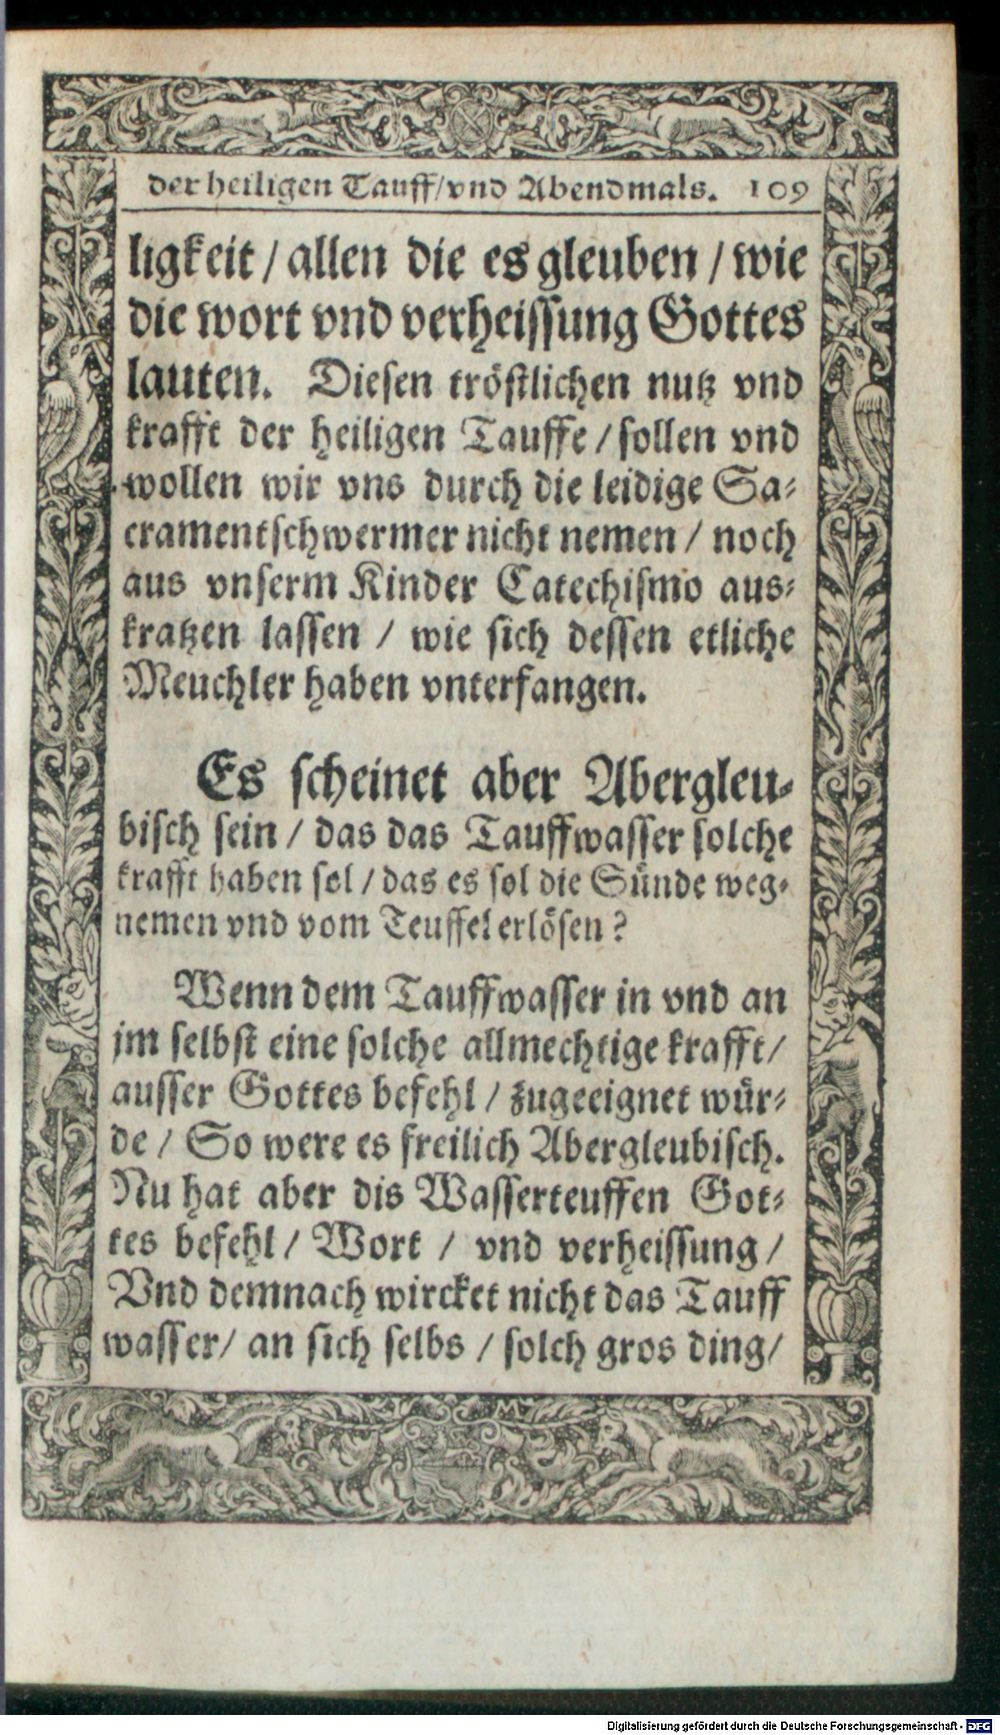 der heiligen Tauff/vnd Abendmals. 109
ligkeit / allen die es gleuben / wie
die wort vnd verheissung Gottes
lauten. Diesen tröstlichen nutz vnd
krafft der heiligen Tauffe / sollen vnd
wollen wir vns durch die leidige Sa-
cramentschwermer nicht nemen / noch
aus vnserm Kinder Catechismo aus-
kratzen lassen / wie sich dessen etliche
Meuchler haben vnterfangen.
Es scheinet aber Abergleu-
bisch sein / das das Tauffwasser solche
krafft haben sol / das es sol die Sünde weg-
nemen vnd vom Teuffel erlösen?
Wenn dem Tauffwasser in vnd an
jm selbst eine solche allmechtige krafft/
ausser Gottes befehl / zugeeignet wür-
de / So were es freilich Abergleubisch.
Nu hat aber dis Wasserteuffen Got-
tes befehl / Wort / vnd verheissung /
Vnd demnach wircket nicht das Tauff
wasser/ an sich selbs / solch gros ding/
Digitalisierung gefördert durch die Deutsche Forschungsgemeinschaft - DFG